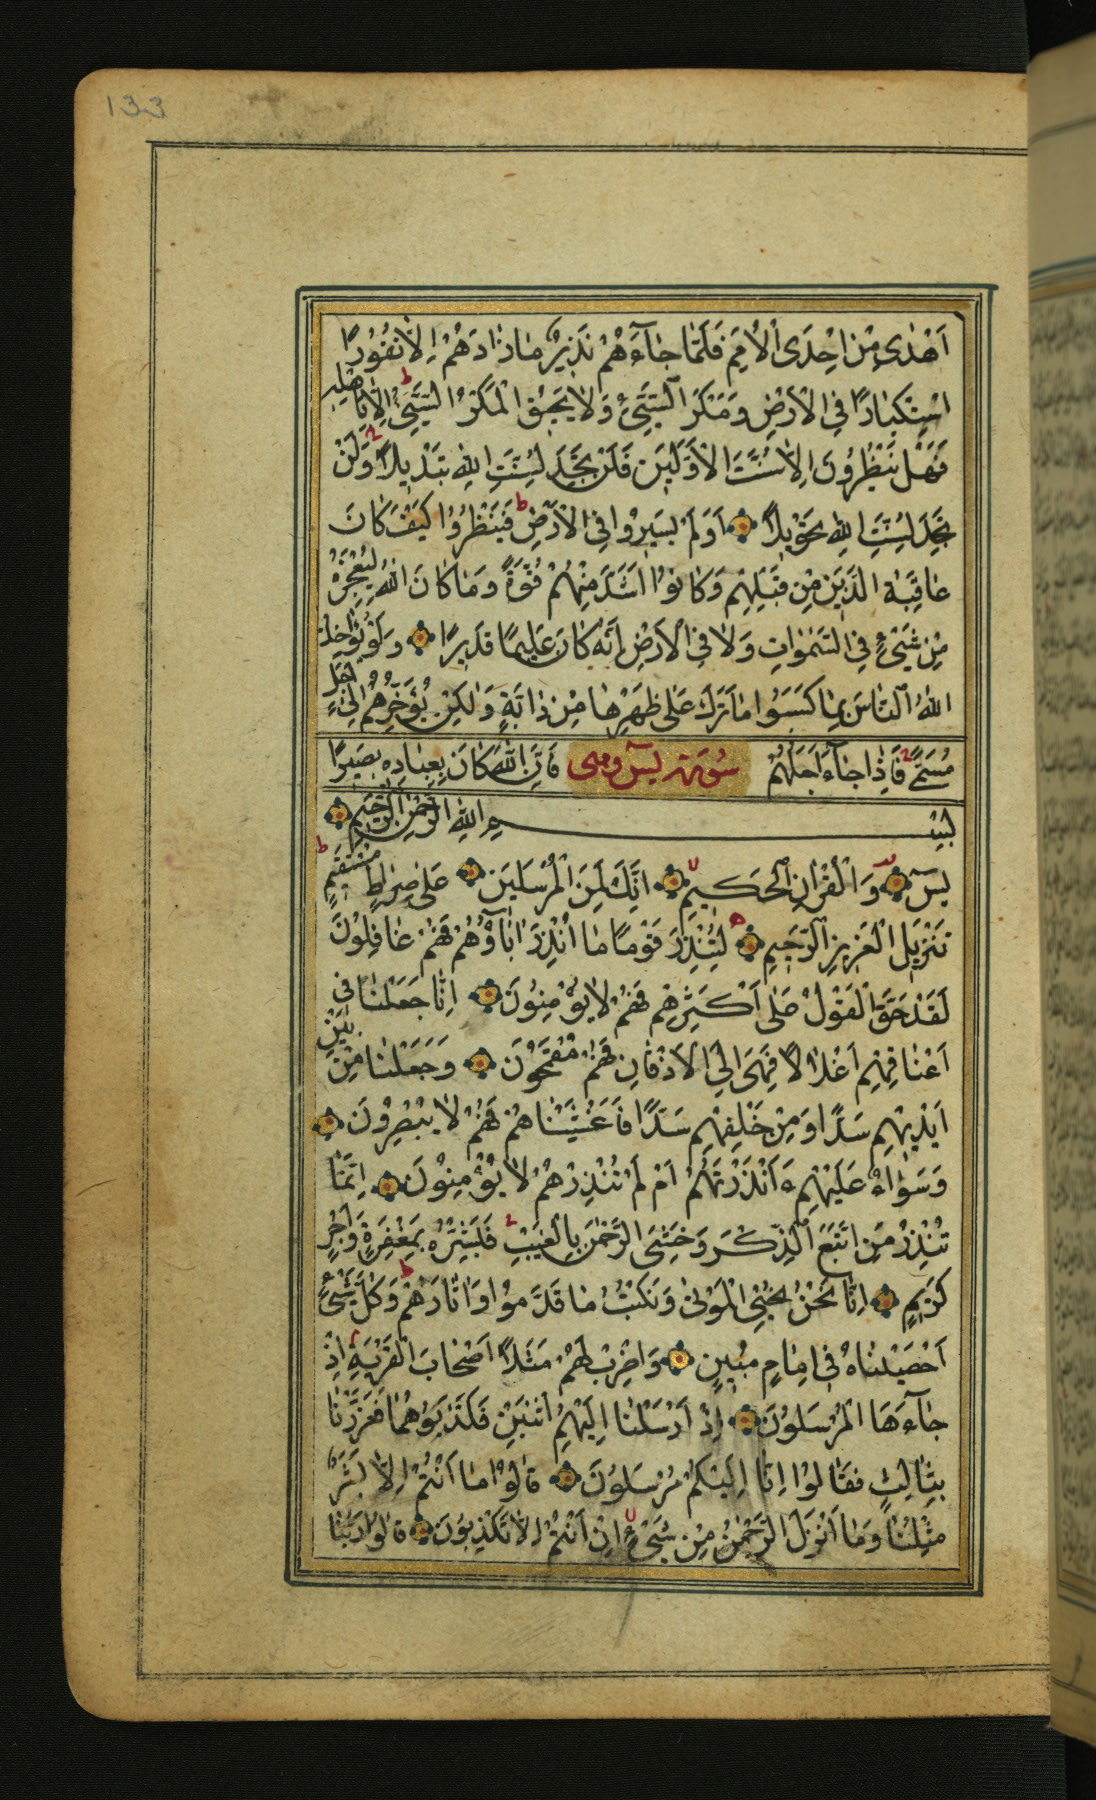 133
اَهْدٰى مِنْ اِحْدَى الْاُمَمِ فَلَمَّا جَاۤءَهُمْ نَذِيرٌ مَا زَادَهُمْ اِلَّا نُفُورًا
اسْتِكْبَارًا فِى الْاَرْضِ وَمَكْرَ السَّيِّئِ وَلَا يَحِيقُ الْمَكْرُ السَّيِّئُ اِلَّا بِاَهْلِهِ
فَهَلْ يَنْظُرُونَ اِلَّا سُنَّتَ الْاَوَّلِينَ فَلَنْ تَجِدَ لِسُنَّتِ اللهِ تَبْدِيلًا وَلَنْ
تَجِدَ لِسُنَّتِ اللهِ تَحْوِيلًا اَوَلَمْ يَسِيرُوا فِى الْاَرْضِ فَيَنْظُرُوا كَيْفَ كَانَ
عَاقِبَةُ الَّذِينَ مِنْ قَبْلِهِمْ وَكَانُوا اَشَدَّ مِنْهُمْ قُوَّةً وَمَا كَانَ اللهُ لِيُعْجِزَهُ
مِنْ شَيْءٍ فِى السَّمٰوَاتِ وَلَا فِى الْاَرْضِ اِنَّهُ كَانَ عَلِيمًا قَدِيرًا وَلَوْ يُؤَاخِذُ
اللهُ النَّاسَ بِمَا كَسَبُوا مَا تَرَكَ عَلٰى ظَهْرِهَا مِنْ دَاۤبَّةٍ وَلٰكِنْ يُؤَخِّرُهُمْ اِلٰى اَجَلٍ
مُسَمًّى فَاِذَا جَاۤءَ اَجَلُهُمْ سورة يسۤ وهى فَاِنَّ اللهَ كَانَ بِعِبَادِهِ بَصِيرًا
بِسْمِ اللهِ الرَّحْمٰنِ الرَّحِيمِ
يسۤ وَالْقُرْاٰنِ الْحَكِيمِ اِنَّكَ لَمِنَ الْمُرْسَلِينَ عَلٰى صِرَاطٍ مُسْتَقِيمٍ
تَنْزِيلَ الْعَزِيزِ الرَّحِيمِ لِتُنْذِرَ قَوْمًا مَا اُنْذِرَ اٰبَاۤؤُهُمْ فَهُمْ غَافِلُونَ
لَقَدْ حَقَّ الْقَوْلُ عَلٰى اَكْثَرِهِمْ فَهُمْ لَا يُؤْمِنُونَ اِنَّا جَعَلْنَا فِى
اَعْنَاقِهِمْ اَغْلَالًا فَهِىَ اِلَى الْاَذْقَانِ فَهُمْ مُقْمَحُونَ وَجَعَلْنَا مِنْ بَيْنِ
اَيْدِيهِمْ سَدًّا وَمِنْ خَلْفِهِمْ سَدًّا فَاَغْشَيْنَاهُمْ فَهُمْ لَا يُبْصِرُونَ
وَسَوَاۤءٌ عَلَيْهِمْ ءَاَنْذَرْتَهُمْ اَمْ لَمْ تُنْذِرْهُمْ لَا يُؤْمِنُونَ اِنَّمَا
تُنْذِرُ مَنِ اتَّبَعَ الذِّكْرَ وَخَشِىَ الرَّحْمٰنَ بِالْغَيْبِ فَبَشِّرْهُ بِمَغْفِرَةٍ وَاَجْرٍ
كَرِيمٍ اِنَّا نَحْنُ نُحْيِى الْمَوْتٰى وَنَكْتُبُ مَا قَدَّمُوا وَاٰثَارَهُمْ وَكُلَّ شَيْءٍ
اَحْصَيْنَاهُ فِى اِمَامٍ مُبِينٍ وَاضْرِبْ لَهُمْ مَثَلًا اَصْحَابَ الْقَرْيَةِ اِذْ
جَاۤءَهَا الْمُرْسَلُونَ اِذْ اَرْسَلْنَا اِلَيْهِمُ اثْنَيْنِ فَكَذَّبُوهُمَا فَعَزَّزْنَا
بِثَالِثٍ فَقَالُوا اِنَّا اِلَيْكُمْ مُرْسَلُونَ قَالُوا مَا اَنْتُمْ اِلَّا بَشَرٌ
مِثْلُنَا وَمَا اَنْزَلَ الرَّحْمٰنُ مِنْ شَيْءٍ اِنْ اَنْتُمْ اِلَّا تَكْذِبُونَ قَالُوا رَبُّنَا